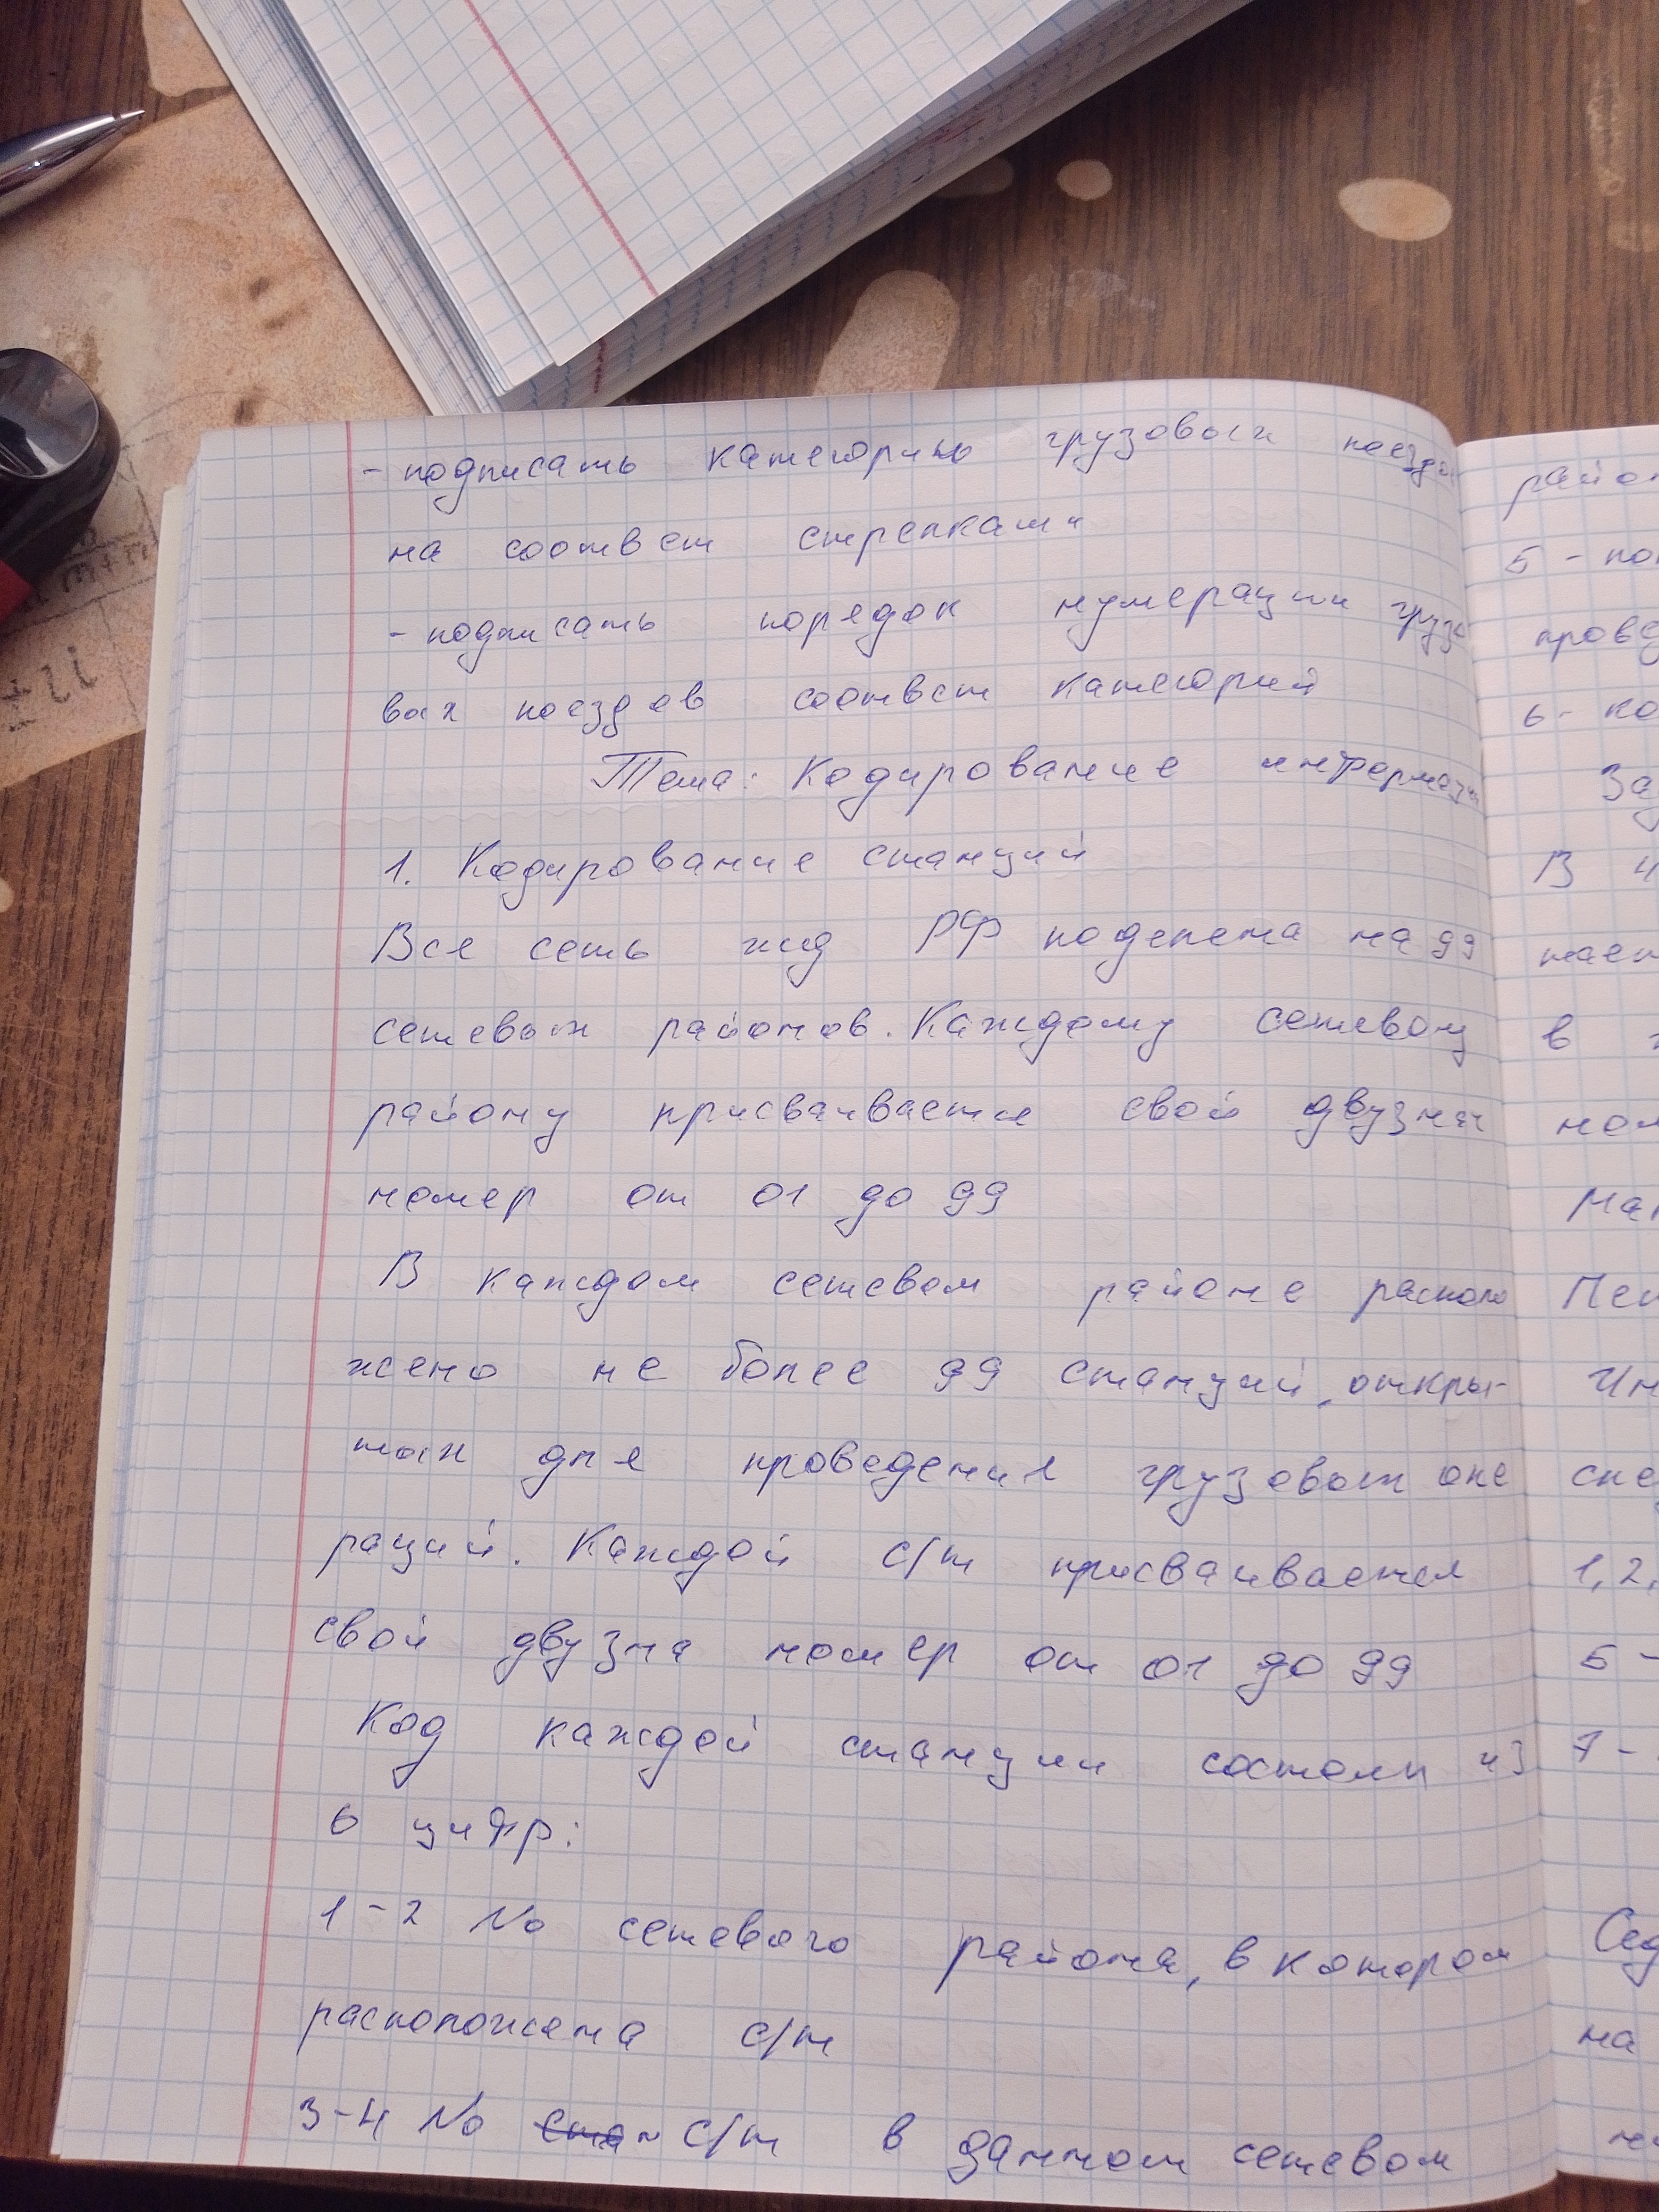 - подписать категорию грузовых поездов
на соответ стрелками
- подписать порядок нумерации грузо
вых поездов соответ категорий
Тема: Кодирование информации
1. Кодирование станций
Вся сеть жд РФ поделена на 99
сетевых районов. Каждому сетевому
району присваивается свой двузнач
номер от 01 до 99
В каждом сетевом районе располо
жено не более 99 станций, откры-
тых для проведения грузовых опе
раций. Каждой с/т присваивается
свой двузна номер от 01 до 99
Код каждой станции состоит из
6 цифр:
1-2 No сетевого района, в котором
расположена с/т
3-4 No с/т в данном сетевом
район
5 -
пров
6 - ко
За
В
в
на
1, 2,
5 -
7 -